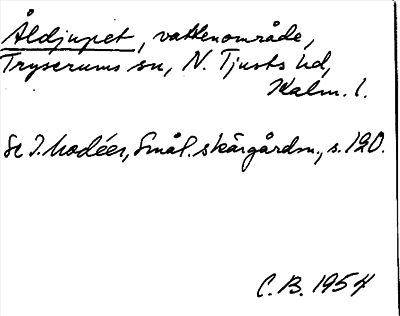 Åldjupet, vattenområde,
Tryserums sn, N. Tjusts hd,
Kalm. l.
Se I. Modéer, Smål. skärgårdsn., s. 120.
C.B. 1954